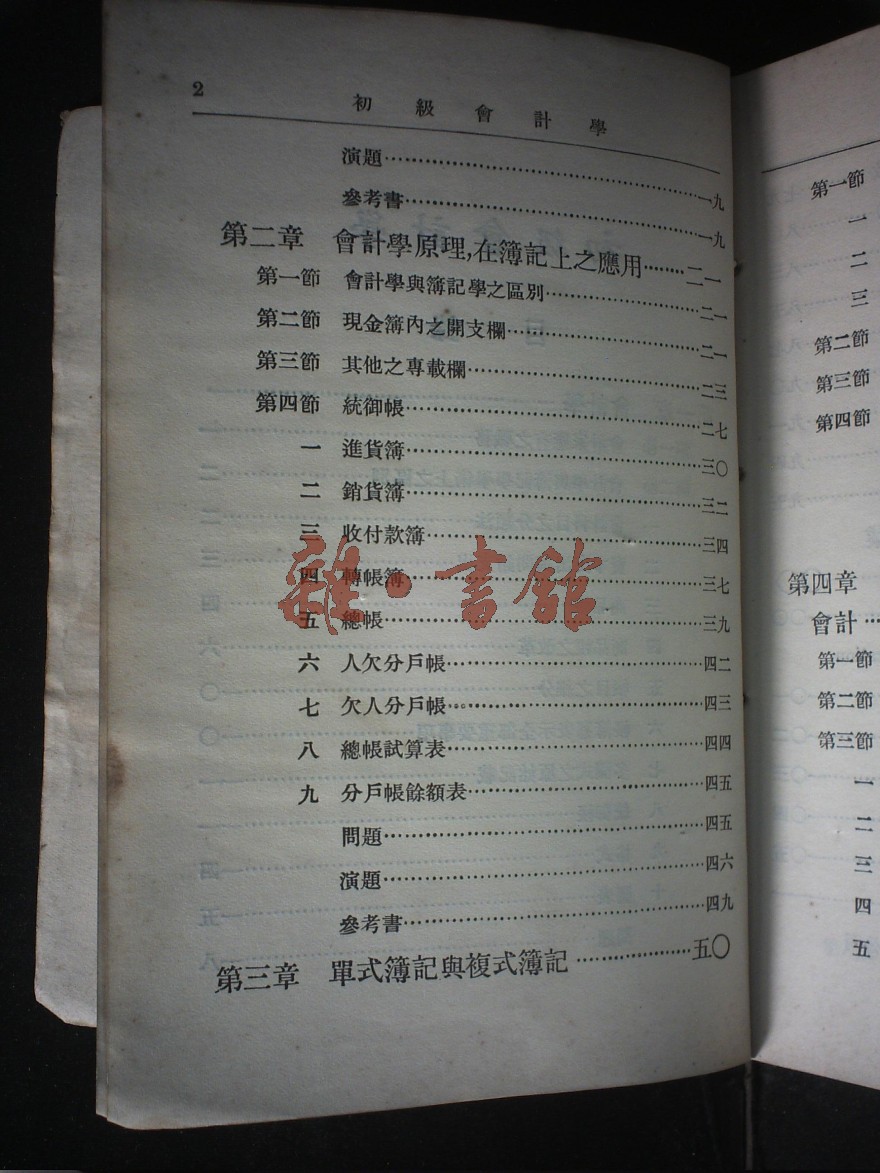 2
初級會計學
演題……一九
參考書……一九
第二章 會計學原理,在簿記上之應用……二一
第一節 會計學與簿記學之區別……二一
第二節 現金簿內之開支欄……二一
第三節 其他之專載欄……二三
第四節 統御帳……二七
一 進貨簿……三〇
二 銷貨簿……三二
三 收付款簿……三四
四 轉帳簿……三七
五 總帳……三九
六 人欠分戶帳……四二
七 欠人分戶帳……四三
八 總帳試算表……四四
九 分戶帳餘額表……四五
問題……四五
演題……四六
參考書……四九
第三章 單式簿記與複式簿記……五〇
雜·書館
第一節
一
二
三
第二節
第三節
第四節
第四章
會計…
第一節
第二節
第三節
一
二
三
四
五